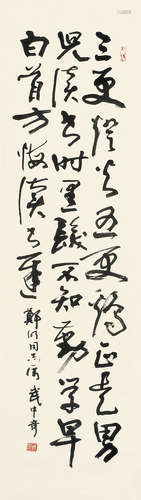 三更灯火五更鸡正是男
儿读书时黑发不知勤学早
白首方悔读书迟
郑州同志属 武中奇